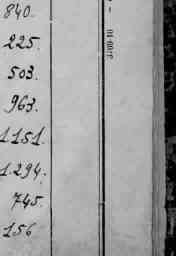 840.
225.
503.
963.
1151.
1.294.
745.
156